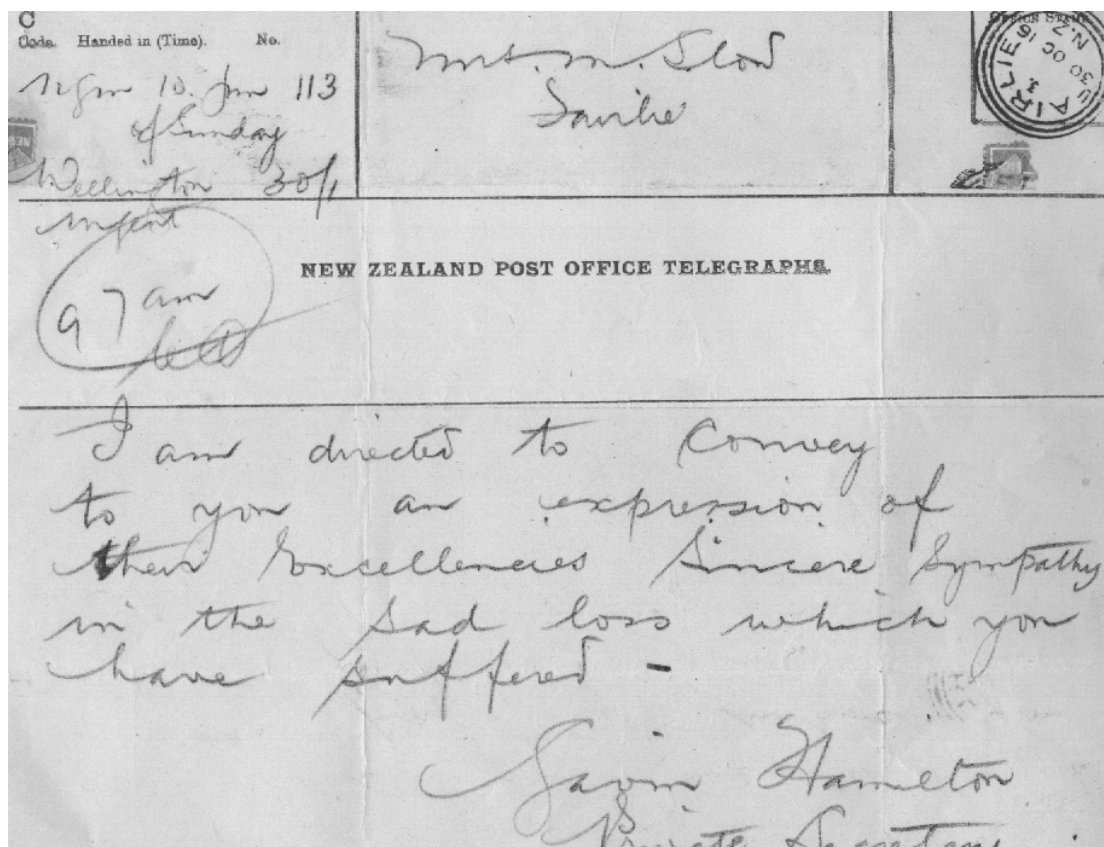 C
Code. Handed in (Time). No.
10. pm 113
of Sunday
Wellington 30/
urgent
Mrs. M.
OFFICE STAMP
FAIRLIE
30 OC 16
N.Z
NEW ZEALAND POST OFFICE TELEGRAPHS.
9 7 am
I am directed to convey
to you an expression of
their Excellencies Sincere Sympathy
in the sad loss which you
have suffered -
Gavin Hamilton
Private Secretary